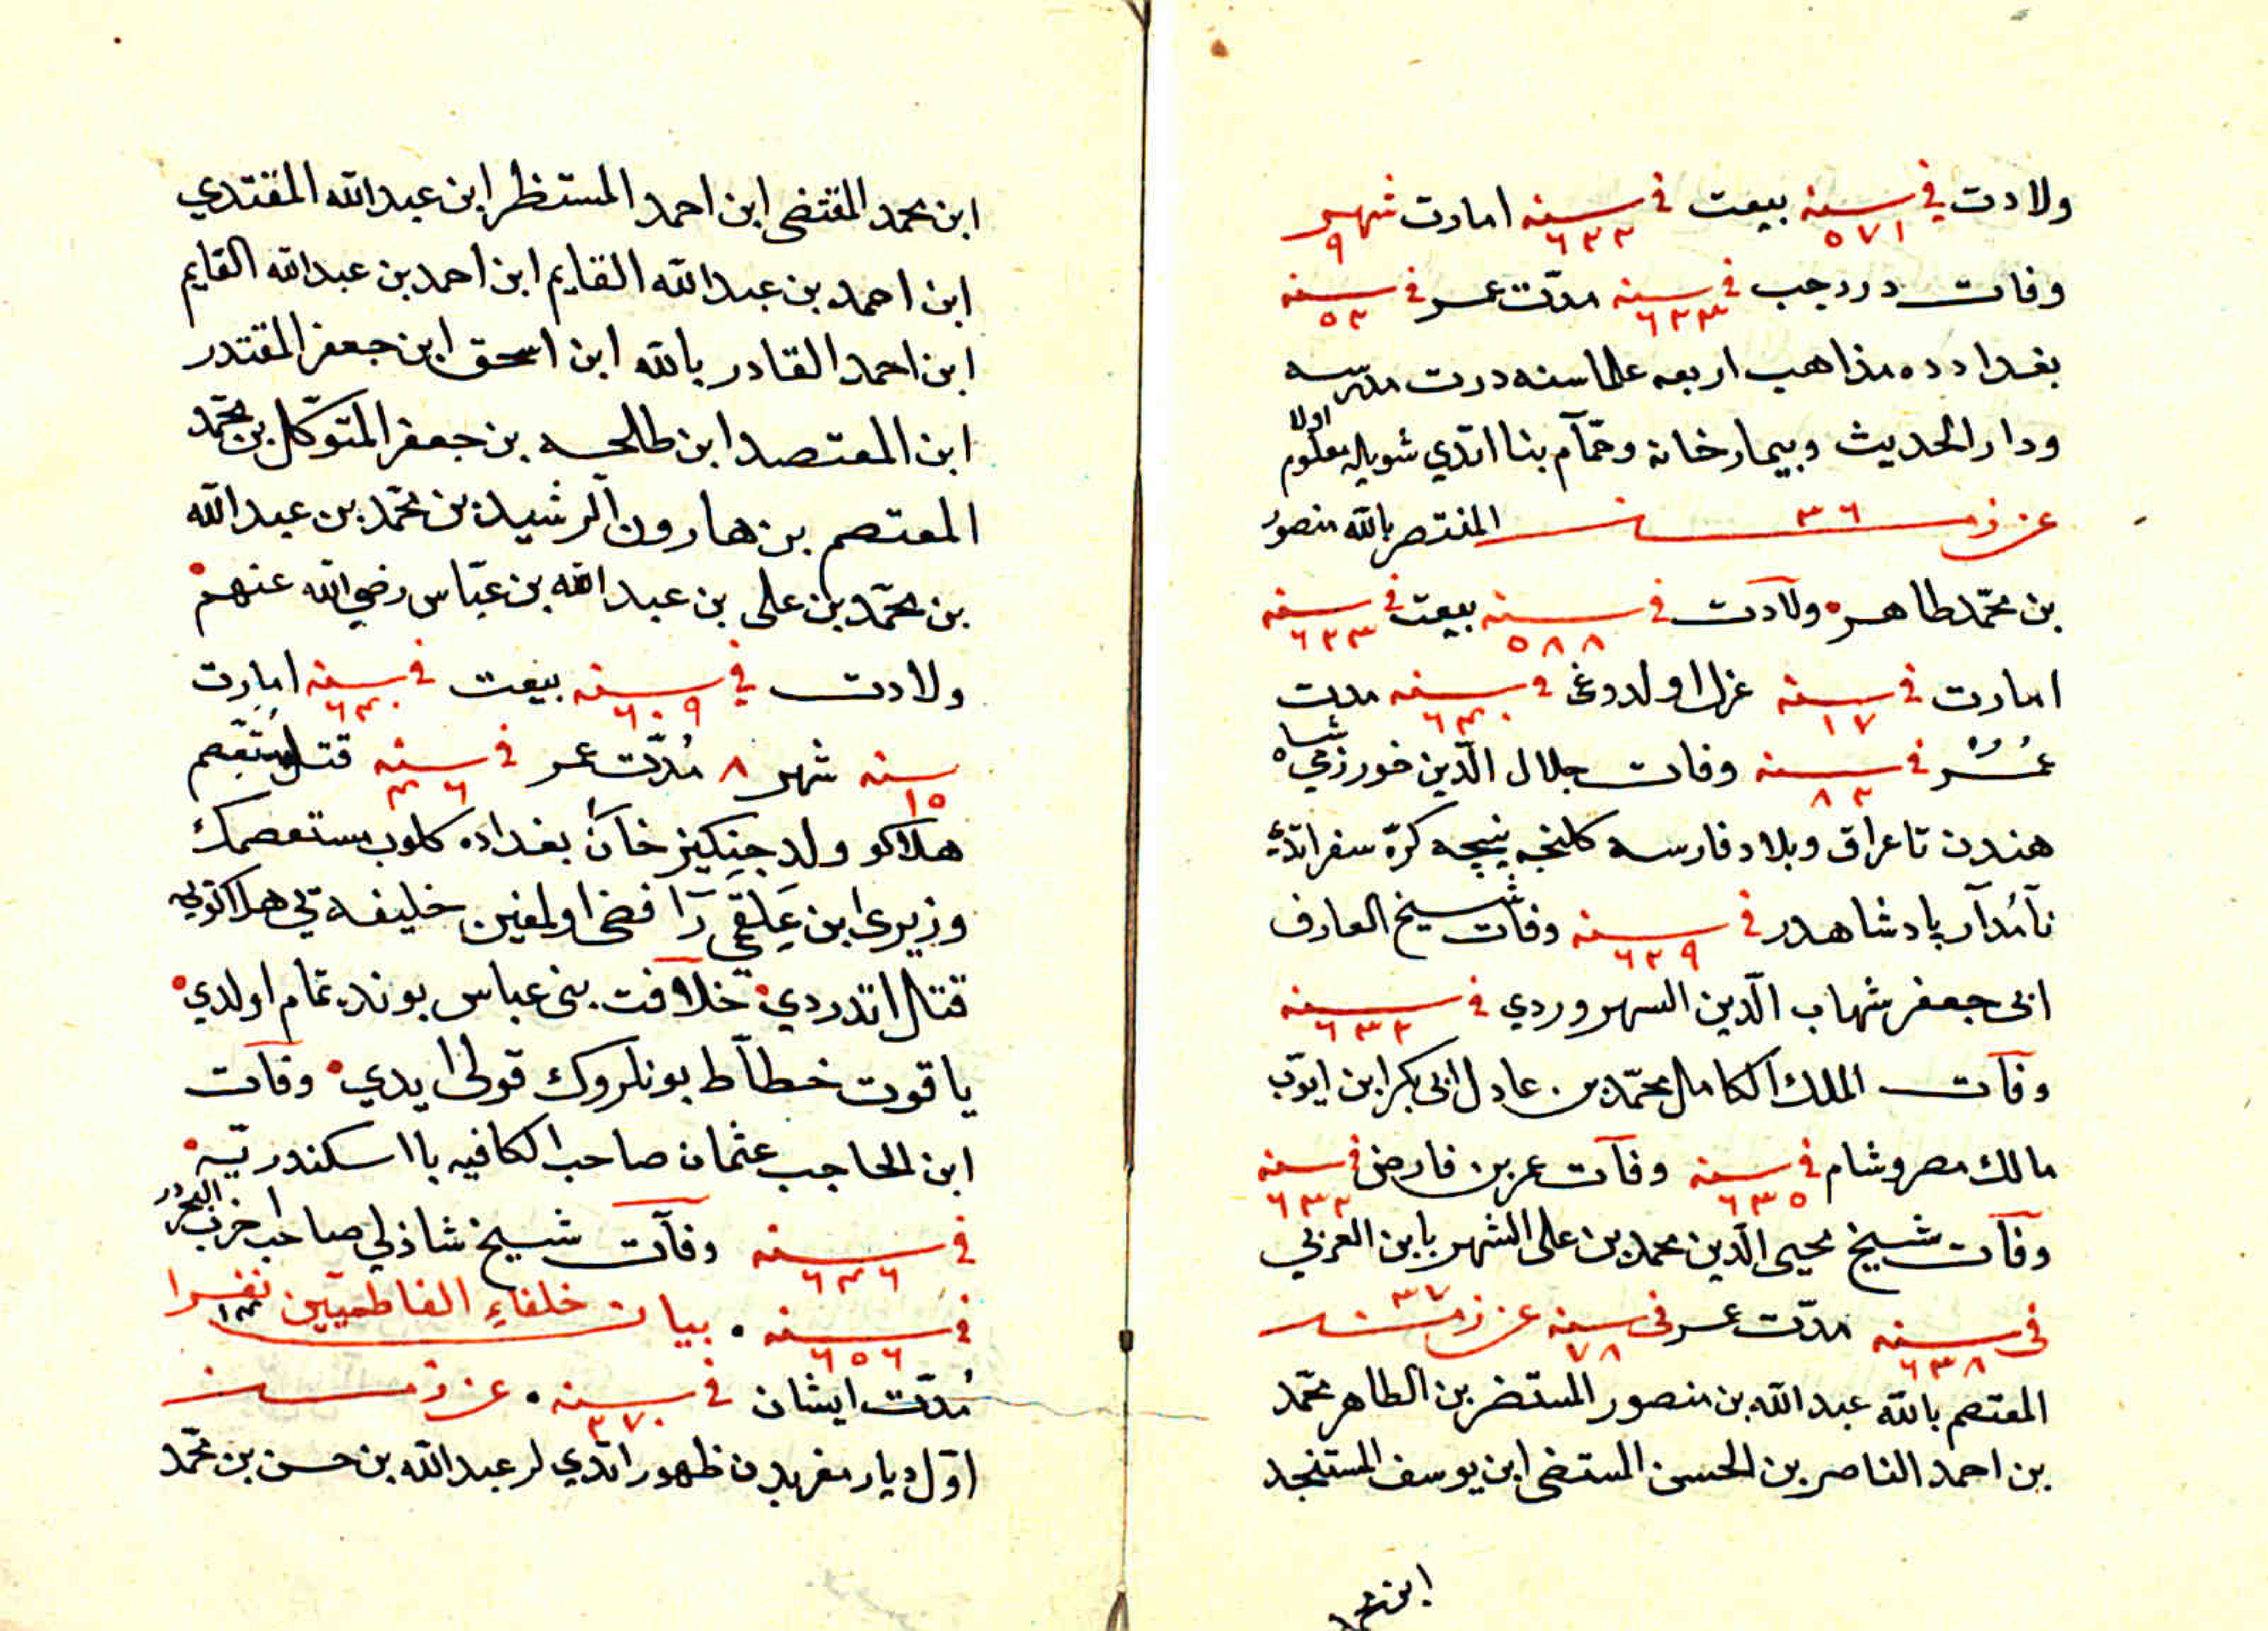 ولادت في سنه ٥٧١ بيعت في سنه ٦٢٢ امارت شهر ٩
وفات در رجب في سنه ٦٢٣ مدّت عمر في سنه ٥٢
بغداد ده مذاهب اربعه علماسنه درت مدرسه
ودار الحديث وبيمارخانه وحمّام بنا اتدي شويله معلوم اولا
عزرمسند ٣٦ المنتصر بالله منصور
بن محمّد طاهر ولادت في سنه ٥٨٨ بيعت في سنه ٦٢٣
امارت في سنه ١٧ عزل اولدوغى في سنه ٦٤٠ مدت
عُمُر في سنه ٨٢ وفات جلال الّدين خورزمي شاه
هندن تا عراق وبلاد فارسه كلنجه نيجه كرّه سفر اتدي
نآمُدآر پادشاهدر في سنه ٦٢٩ وفات شيخ العارف
ابى جعفر شهاب الّدين السهروردي في سنه ٦٣٢
وفآت الملك الكامل محمّد بن عادل ابى بكر ابن ايوّب
مالك مصر وشام في سنه ٦٣٥ وفآت عمر بن فارض في سنه ٦٣٢
وفآت شيخ محيى الّدين محمد بن على الشهر بابن العربي
في سنه ٦٣٨ مدّت عمر في سنه ٧٨ عزرمسند ٣٧
المعتصم بالله عبد الله بن منصور المستضر بن الطاهر محمّد
بن احمد الناصر بن الحسن المستضى ابن يوسف المستنجد
ابن محمد
ابن محمد المقتضى ابن احمد المستظر ابن عبد الله المقتدي
ابن احمد بن عبد الله القايم ابن احمد بن عبد الله القايم
ابن احمد القادر بالله ابن اسحق ابن جعفر المقتدر
ابن المعتصد ابن طالحه بن جعفر المتوكّل بن محمّد
المعتصم بن هارون الرشيد بن محمّد بن عبد الله
بن محمّد بن على بن عبد الله بن عبّاس رضي الله عنهم
ولادت في سنه ٦٠٩ بيعت في سنه ٦٤٠ امارت
سنه ١٥ شهر ٨ مُدّت عمر في سنه ٤٦ قتل
هلاكو ولد جنكيز خان بغداده كلوب مستعصمك
وزيرى ابن علقمي رآفضى اولمغين خليفه يي هلاكويه
قتال اتدردي خلآفت بنى عباس بونده تمام اولدي
ياقوت خطآط بونلروك قولى ايدي وفآت
ابن الحاجب عثمان صاحب الكافيه با اسكندريّه
في سنه ٦٤٦ وفآت شيخ شاذلي صاحب حزب البحر در
في سنه ٦٥٦ بيان خلفاءِ الفاطميّين نفرا ١٤
مُدّت ايشان في سنه ٢٧٠ عزرمسند
اوّل ديار مغربدن ظهور اتدي لر عبد الله بن حسن بن محمّد